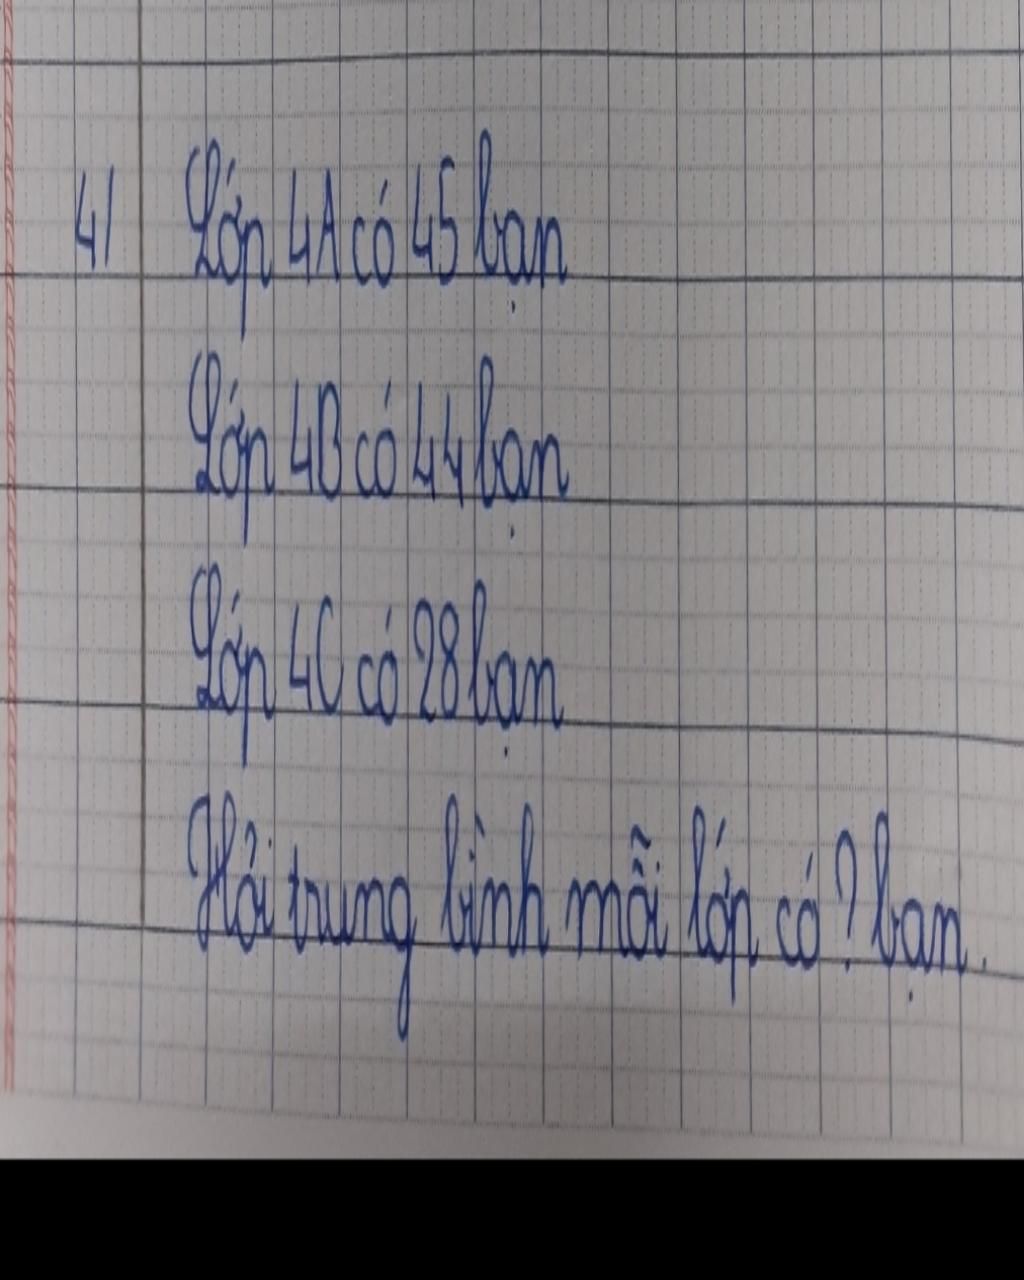 4/ Lớp 4A có 45 bạn
Lớp 4B có 44 bạn
Lớp 4C có 28 bạn
Hỏi trung bình mỗi lớp có ? bạn.